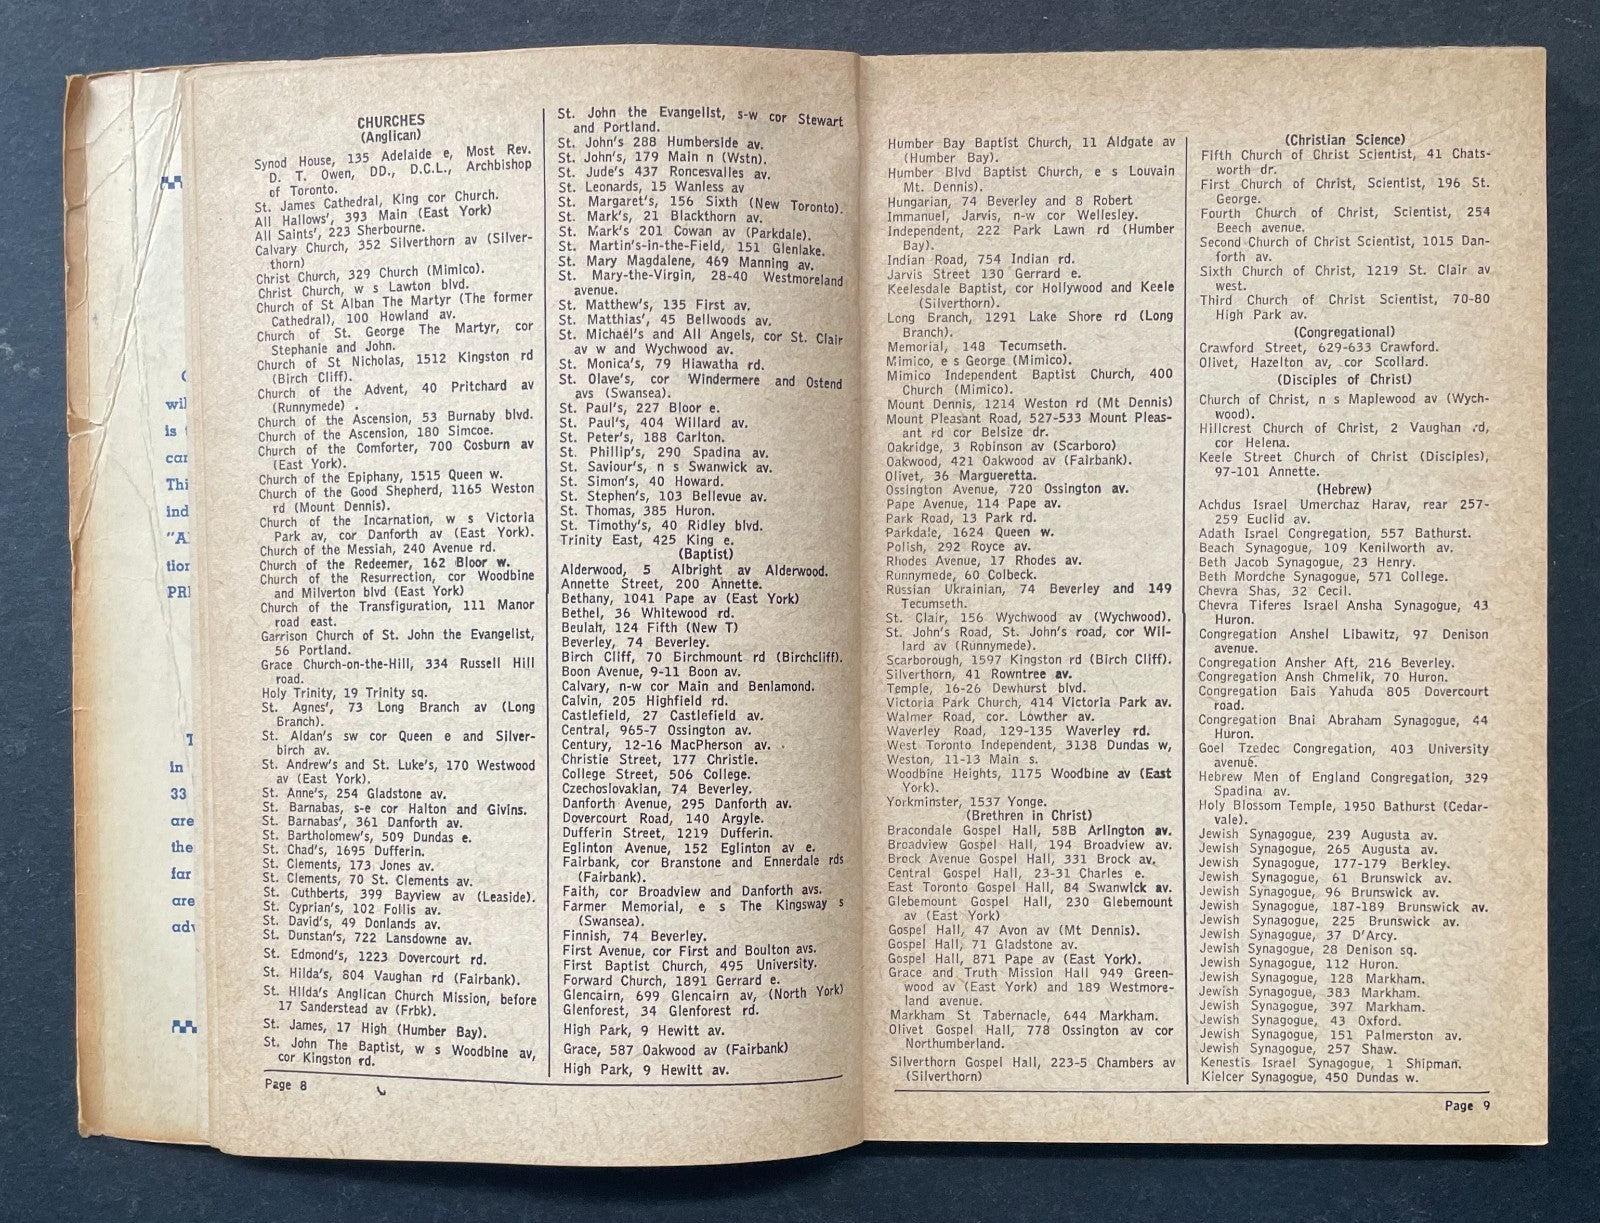 C
wil
is
car
Thi
ind
"A
tion
PRI
T
in
33
are
the
far
are
adv
CHURCHES
(Anglican)
Synod House, 135 Adelaide e, Most Rev.
D. T. Owen, DD., D.C.L., Archbishop
of Toronto.
St. James Cathedral, King cor Church.
All Hallows', 393 Main (East York)
All Saints', 223 Sherbourne.
Calvary Church, 352 Silverthorn av (Silver-
thorn)
Christ Church, 329 Church (Mimico).
Christ Church, w s Lawton blvd.
Church of St Alban The Martyr (The former
Cathedral), 100 Howland av.
Church of St. George The Martyr, cor
Stephanie and John.
Church of St Nicholas, 1512 Kingston rd
(Birch Cliff).
Church of the Advent, 40 Pritchard av
(Runnymede) .
Church of the Ascension, 53 Burnaby blvd.
Church of the Ascension, 180 Simcoe.
Church of the Comforter, 700 Cosburn av
(East York).
Church of the Epiphany, 1515 Queen w.
Church of the Good Shepherd, 1165 Weston
rd (Mount Dennis).
Church of the Incarnation, w s Victoria
Park av, cor Danforth av (East York).
Church of the Messiah, 240 Avenue rd.
Church of the Redeemer, 162 Bloor w.
Church of the Resurrection, cor Woodbine
and Milverton blvd (East York)
Church of the Transfiguration, 111 Manor
road east.
Garrison Church of St. John the Evangelist,
56 Portland.
Grace Church-on-the-Hill, 334 Russell Hill
road.
Holy Trinity, 19 Trinity sq.
St. Agnes', 73 Long Branch av (Long
Branch).
St. Aldan's sw cor Queen e and Silver-
birch av.
St. Andrew's and St. Luke's, 170 Westwood
av (East York).
St. Anne's, 254 Gladstone av.
St. Barnabas, s-e cor Halton and Givins.
St. Barnabas', 361 Danforth av.
St. Bartholomew's, 509 Dundas e.
St. Chad's, 1695 Dufferin.
St. Clements, 173 Jones av.
St. Clements, 70 St. Clements av.
St. Cuthberts, 399 Bayview av (Leaside).
St. Cyprian's, 102 Follis av.
St. David's, 49 Donlands av.
St. Dunstan's, 722 Lansdowne av.
St. Edmond's, 1223 Dovercourt rd.
St. Hilda's, 804 Vaughan rd (Fairbank).
St. Hilda's Anglican Church Mission, before
17 Sanderstead av (Frbk).
St. James, 17 High (Humber Bay).
St. John The Baptist, w s Woodbine av,
cor Kingston rd.
Page 8
St. John the Evangelist, s-w cor Stewart
and Portland.
St. John's 288 Humberside av.
St. John's, 179 Main n (Wstn).
St. Jude's 437 Roncesvalles av.
St. Leonards, 15 Wanless av
St. Margaret's, 156 Sixth (New Toronto).
St. Mark's, 21 Blackthorn av.
St. Mark's 201 Cowan av (Parkdale).
St. Martin's-in-the-Field, 151 Glenlake.
St. Mary Magdalene, 469 Manning av.
St. Mary-the-Virgin, 28-40 Westmoreland
avenue.
St. Matthew's, 135 First av.
St. Matthias', 45 Bellwoods av.
St. Michael's and All Angels, cor St. Clair
av w and Wychwood av.
St. Monica's, 79 Hiawatha rd.
St. Olave's, cor Windermere and Ostend
avs (Swansea).
St. Paul's, 227 Bloor e.
St. Paul's, 404 Willard av.
St. Peter's, 188 Carlton.
St. Phillip's, 290 Spadina av.
St. Saviour's, n s Swanwick av.
St. Simon's, 40 Howard.
St. Stephen's, 103 Bellevue av.
St. Thomas, 385 Huron.
St. Timothy's, 40 Ridley blvd.
Trinity East, 425 King e.
(Baptist)
Alderwood, 5 Albright av Alderwood.
Annette Street, 200 Annette.
Bethany, 1041 Pape av (East York)
Bethel, 36 Whitewood rd.
Beulah, 124 Fifth (New T)
Beverley, 74 Beverley.
Birch Cliff, 70 Birchmount rd (Birchcliff).
Boon Avenue, 9-11 Boon av.
Calvary, n-w cor Main and Benlamond.
Calvin, 205 Highfield rd.
Castlefield, 27 Castlefield av.
Central, 965-7 Ossington av.
Century, 12-16 MacPherson av.
Christie Street, 177 Christie.
College Street, 506 College.
Czechoslovakian, 74 Beverley.
Danforth Avenue, 295 Danforth av.
Dovercourt Road, 140 Argyle.
Dufferin Street, 1219 Dufferin.
Eglinton Avenue, 152 Eglinton av e.
Fairbank, cor Branstone and Ennerdale rds
(Fairbank).
Faith, cor Broadview and Danforth avs.
Farmer Memorial, e s The Kingsway s
(Swansea).
Finnish, 74 Beverley.
First Avenue, cor First and Boulton avs.
First Baptist Church, 495 University.
Forward Church, 1891 Gerrard e.
Glencairn, 699 Glencairn av, (North York)
Glenforest, 34 Glenforest rd.
High Park, 9 Hewitt av.
Grace, 587 Oakwood av (Fairbank)
High Park, 9 Hewitt av.
Humber Bay Baptist Church, 11 Aldgate av
(Humber Bay).
Humber Blvd Baptist Church, e s Louvain
Mt. Dennis).
Hungarian, 74 Beverley and 8 Robert
Immanuel, Jarvis, n-w cor Wellesley.
Independent, 222 Park Lawn rd (Humber
Bay).
Indian Road, 754 Indian rd.
Jarvis Street 130 Gerrard e.
Keelesdale Baptist, cor Hollywood and Keele
(Silverthorn).
Long Branch, 1291 Lake Shore rd (Long
Branch).
Memorial, 148 Tecumseth.
Mimico, e s George (Mimico).
Mimico Independent Baptist Church, 400
Church (Mimico).
Mount Dennis, 1214 Weston rd (Mt Dennis)
Mount Pleasant Road, 527-533 Mount Pleas-
ant rd cor Belsize dr.
Oakridge, 3 Robinson av (Scarboro)
Oakwood, 421 Oakwood av (Fairbank).
Olivet, 36 Margueretta.
Ossington Avenue, 720 Ossington av.
Pape Avenue, 114 Pape av.
Park Road, 13 Park rd.
Parkdale, 1624 Queen w.
Polish, 292 Royce av.
Rhodes Avenue, 17 Rhodes av.
Runnymede, 60 Colbeck.
Russian Ukrainian, 74 Beverley and 149
Tecumseth.
St. Clair, 156 Wychwood av (Wychwood).
St. John's Road, St. John's road, cor Wil-
lard av (Runnymede).
Scarborough, 1597 Kingston rd (Birch Cliff).
Silverthorn, 41 Rowntree av.
Temple, 16-26 Dewhurst blvd.
Victoria Park Church, 414 Victoria Park av.
Walmer Road, cor. Lowther av.
Waverley Road, 129-135 Waverley rd.
West Toronto Independent, 3138 Dundas w,
Weston, 11-13 Main s.
Woodbine Heights, 1175 Woodbine av (East
York).
Yorkminster, 1537 Yonge.
(Brethren in Christ)
Bracondale Gospel Hall, 58B Arlington av.
Broadview Gospel Hall, 194 Broadview av.
Brock Avenue Gospel Hall, 331 Brock av.
Central Gospel Hall, 23-31 Charles e.
East Toronto Gospel Hall, 84 Swanwick av.
Glebemount Gospel Hall, 230 Glebemount
av (East York)
Gospel Hall, 47 Avon av (Mt Dennis).
Gospel Hall, 71 Gladstone av.
Gospel Hall, 871 Pape av (East York).
Grace and Truth Mission Hall 949 Green-
wood av (East York) and 189 Westmore-
land avenue.
Markham St Tabernacle, 644 Markham.
Olivet Gospel Hall, 778 Ossington av cor
Northumberland.
Silverthorn Gospel Hall, 223-5 Chambers av
(Silverthorn)
(Christian Science)
Fifth Church of Christ Scientist, 41 Chats-
worth dr.
First Church of Christ, Scientist, 196 St.
George.
Fourth Church of Christ, Scientist, 254
Beech avenue.
Second Church of Christ Scientist, 1015 Dan-
forth av.
Sixth Church of Christ, 1219 St. Clair av
west.
Third Church of Christ Scientist, 70-80
High Park av.
(Congregational)
Crawford Street, 629-633 Crawford.
Olivet, Hazelton av, cor Scollard.
(Disciples of Christ)
Church of Christ, n s Maplewood av (Wych-
wood).
Hillcrest Church of Christ, 2 Vaughan rd,
cor Helena.
Keele Street Church of Christ (Disciples),
97-101 Annette.
(Hebrew)
Achdus Israel Umerchaz Harav, rear 257-
259 Euclid av.
Adath Israel Congregation, 557 Bathurst.
Beach Synagogue, 109 Kenilworth av.
Beth Jacob Synagogue, 23 Henry.
Beth Mordche Synagogue, 571 College.
Chevra Shas, 32 Cecil.
Chevra Tiferes Israel Ansha Synagogue, 43
Huron.
Congregation Anshel Libawitz, 97 Denison
avenue.
Congregation Ansher Aft, 216 Beverley.
Congregation Ansh Chmelik, 70 Huron.
Congregation Bais Yahuda 805 Dovercourt
road.
Congregation Bnai Abraham Synagogue, 44
Huron.
Goel Tzedec Congregation, 403 University
avenue.
Hebrew Men of England Congregation, 329
Spadina av.
Holy Blossom Temple, 1950 Bathurst (Cedar-
vale).
Jewish Synagogue, 239 Augusta av.
Jewish Synagogue, 265 Augusta av.
Jewish Synagogue, 177-179 Berkley.
Jewish Synagogue, 61 Brunswick av.
Jewish Synagogue, 96 Brunswick av.
Jewish Synagogue, 187-189 Brunswick av.
Jewish Synagogue, 225 Brunswick av.
Jewish Synagogue, 37 D'Arcy.
Jewish Synagogue, 28 Denison sq.
Jewish Synagogue, 112 Huron.
Jewish Synagogue, 128 Markham.
Jewish Synagogue, 383 Markham.
Jewish Synagogue, 397 Markham.
Jewish Synagogue, 43 Oxford.
Jewish Synagogue, 151 Palmerston av.
Jewish Synagogue, 257 Shaw.
Kenestis Israel Synagogue, 1 Shipman.
Kielcer Synagogue, 450 Dundas w.
Page 9